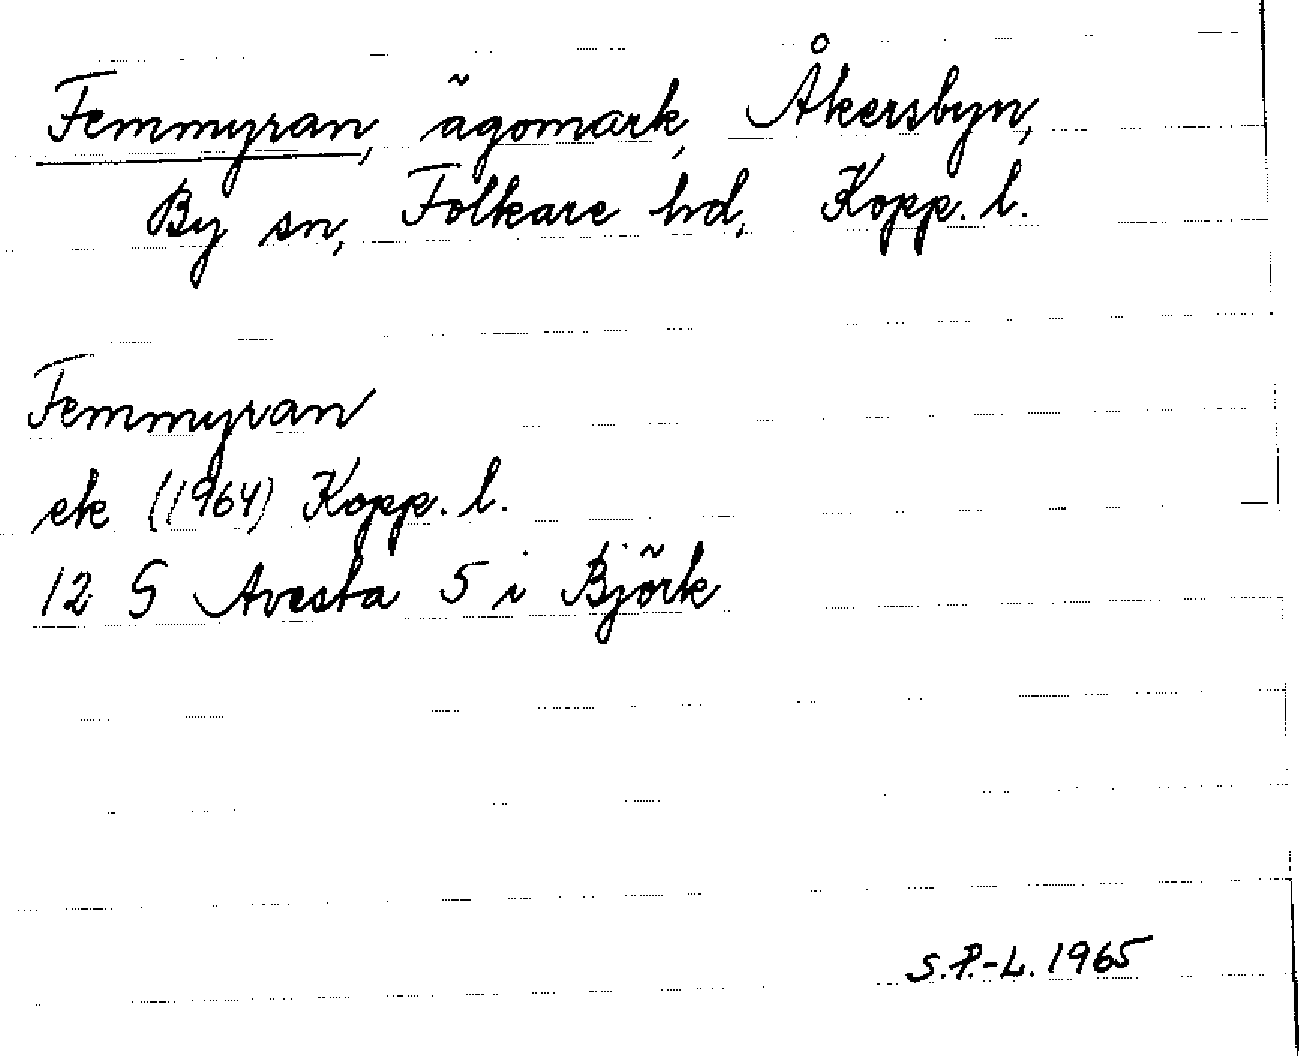 Femmyran, ägomark, Åkersbyn,
By sn, Folkare hd, Kopp. l.
Femmyran
ek (1964) Kopp. l.
12 G Avesta 5 i Björk
S.P.-L. 1965